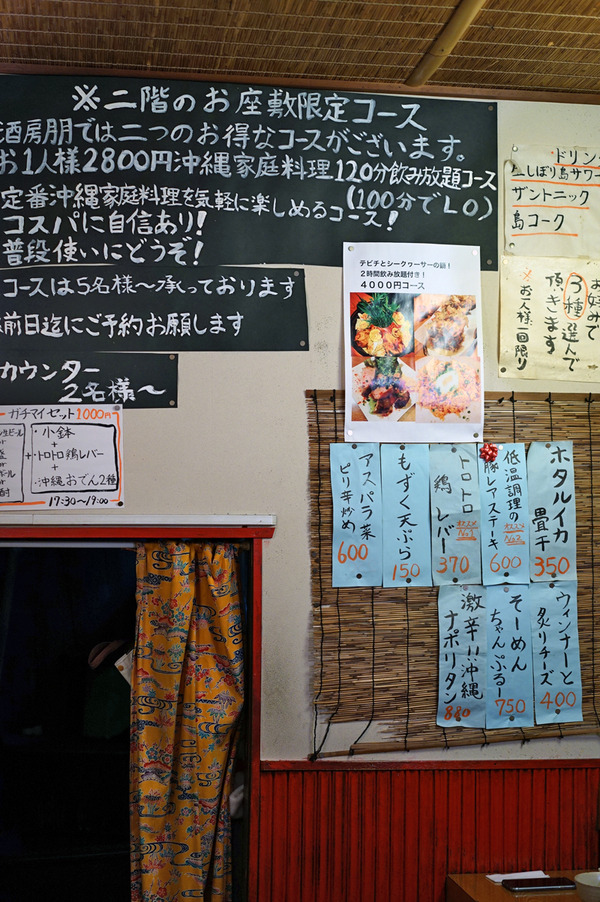 ※二階のお座敷限定コース
酒房朋では二つのお得なコースがございます。
お1人様2800円沖縄家庭料理120分飲み放題コース
(100分でLO)
定番沖縄家庭料理を気軽に楽しめるコース!
コスパに自信あり!
普段使いにどうぞ!
コースは5名様〜承っております
前日迄にご予約お願します
カウンター
2名様〜
ガチマイセット1000円
・小鉢
+
・トロトロ鶏レバー
+
・沖縄おでん2種
17:30〜19:00
テビチとシークヮーサーの鍋!
2時間飲み放題付き!
4000円コース
ドリン
生しぼり島サワー
ザントニック
島コーク
お好みで
3種選んで
頂きます
※お一人様一回限り
ホタルイカ
畳干
350
低温調理の
豚レアステーキ
600
トロトロ
鶏レバー
370
もずく天ぷら
150
アスパラ菜
ピリ辛炒め
600
ウィンナーと
炙りチーズ
400
そーめん
ちゃんぷるー
750
激辛!!沖縄
ナポリタン
880